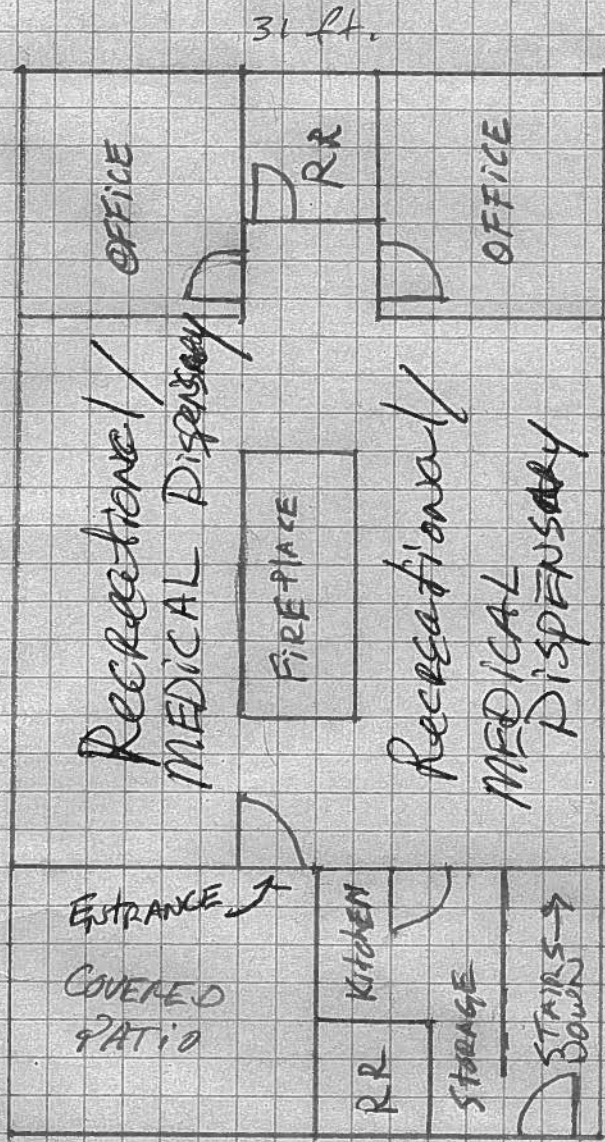 31 ft.
OFFICE
RR
OFFICE
Recreational/
MEDICAL Dispensary
FIREPLACE
Recreational/
MEDICAL
DISPENSARY
ENTRANCE
COVERED
PATIO
KITCHEN
RR
STORAGE
STAIRS→
DOWN